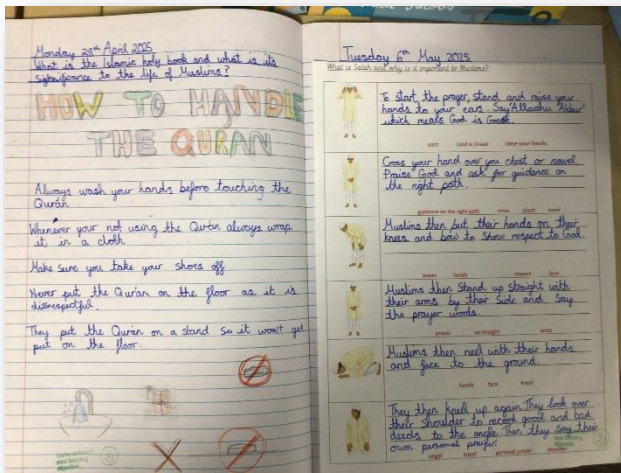 Monday 28th April 2025
What is the Islamic holy book and what is its
significance to the life of Muslims?
HOW TO HANDLE
THE QURAN
Always wash your hands before touching the
Qurán
Whenever your not using the Qurán always wrap
it in a cloth
Make sure you take your shoes off
Never put the Qurán on the floor as it is
disrespectful.
They put the Qurán on a stand so it won't get
put on the floor.
Tuesday 6th May 2025
What is Salah and why is it important to Muslims?
To start the prayer, stand and raise your
hands to your ears. Say 'Allaahu Akbar'
which means God is Great.
ears God is Great raise your hands
Cross your hand over you chest or navel
Praise God and ask for guidance on
the right path.
guidance on the right path cross chest navel
Muslims then put their hands on their
knees and bow to show respect to God.
knees hands respect bow
Muslims then stand up straight with
their arms by their side and say
the prayer words.
prayer up straight arms
Muslims then neel with their hands
and face to the ground.
hands face kneel
They then kneel up again. They look over
their shoulder to record good and bad
deeds to the angle. Then they say their
own personal prayer.
angel kneel personal prayer shoulder